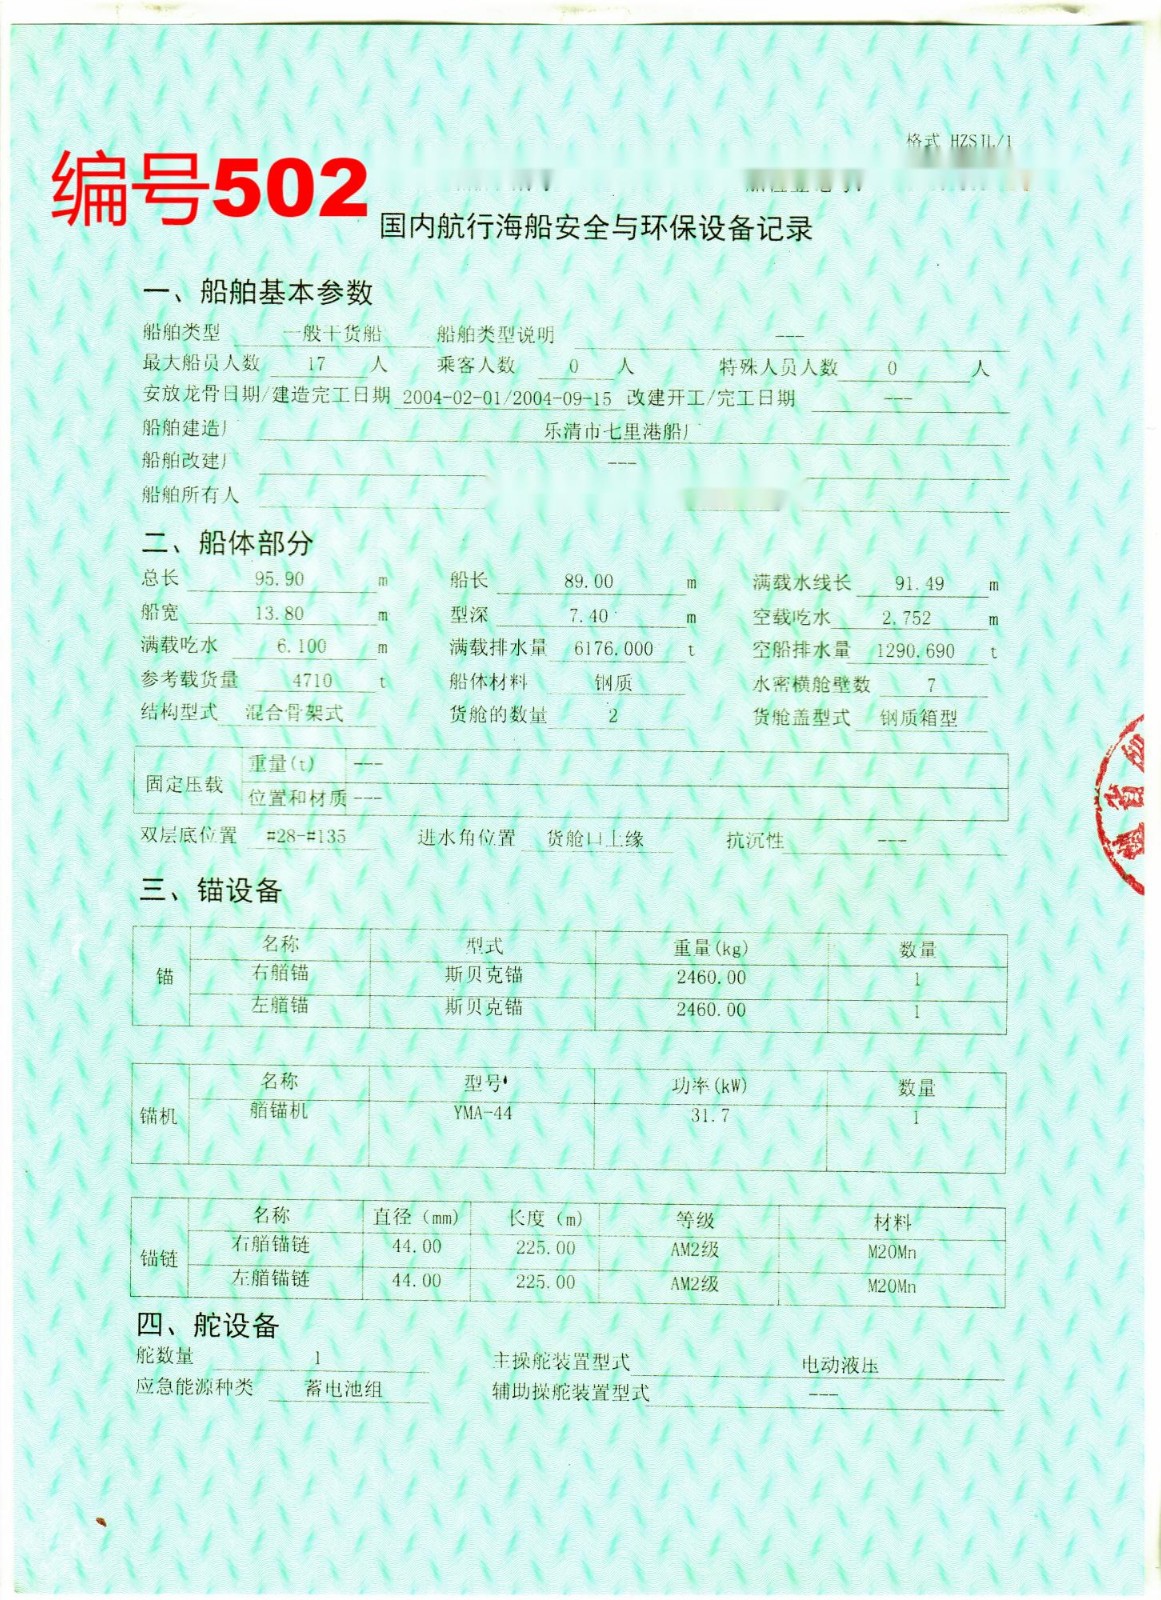 格式 HZSJL/1
编号502
国内航行海船安全与环保设备记录
一、船舶基本参数
船舶类型 一般干货船 船舶类型说明 ---
最大船员人数 17 人 乘客人数 0 人 特殊人员人数 0 人
安放龙骨日期/建造完工日期 2004-02-01/2004-09-15 改建开工/完工日期 ---
船舶建造厂 乐清市七里港船厂
船舶改建厂 ---
船舶所有人
二、船体部分
总长 95.90 m 船长 89.00 m 满载水线长 91.49 m
船宽 13.80 m 型深 7.40 m 空载吃水 2.752 m
满载吃水 6.100 m 满载排水量 6176.000 t 空船排水量 1290.690 t
参考载货量 4710 t 船体材料 钢质 水密横舱壁数 7
结构型式 混合骨架式 货舱的数量 2 货舱盖型式 钢质箱型
固定压载 重量(t) ---
位置和材质 ---
双层底位置 #28-#135 进水角位置 货舱口上缘 抗沉性 ---
三、锚设备
锚 名称 型式 重量(kg) 数量
右艏锚 斯贝克锚 2460.00 1
左艏锚 斯贝克锚 2460.00 1
锚机 名称 型号 功率(kW) 数量
艏锚机 YMA-44 31.7 1
锚链 名称 直径(mm) 长度(m) 等级 材料
右艏锚链 44.00 225.00 AM2级 M20Mn
左艏锚链 44.00 225.00 AM2级 M20Mn
四、舵设备
舵数量 1 主操舵装置型式 电动液压
应急能源种类 蓄电池组 辅助操舵装置型式 ---